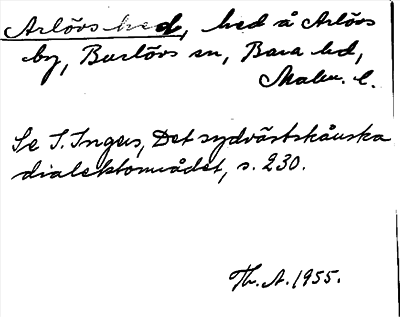 Arlövs hed, hed å Arlövs
by, Burlövs sn, Bara hd,
Malm. l.
Se S. Ingers, Det sydvästskånska
dialektområdet, s. 230.
Th. A. 1955.